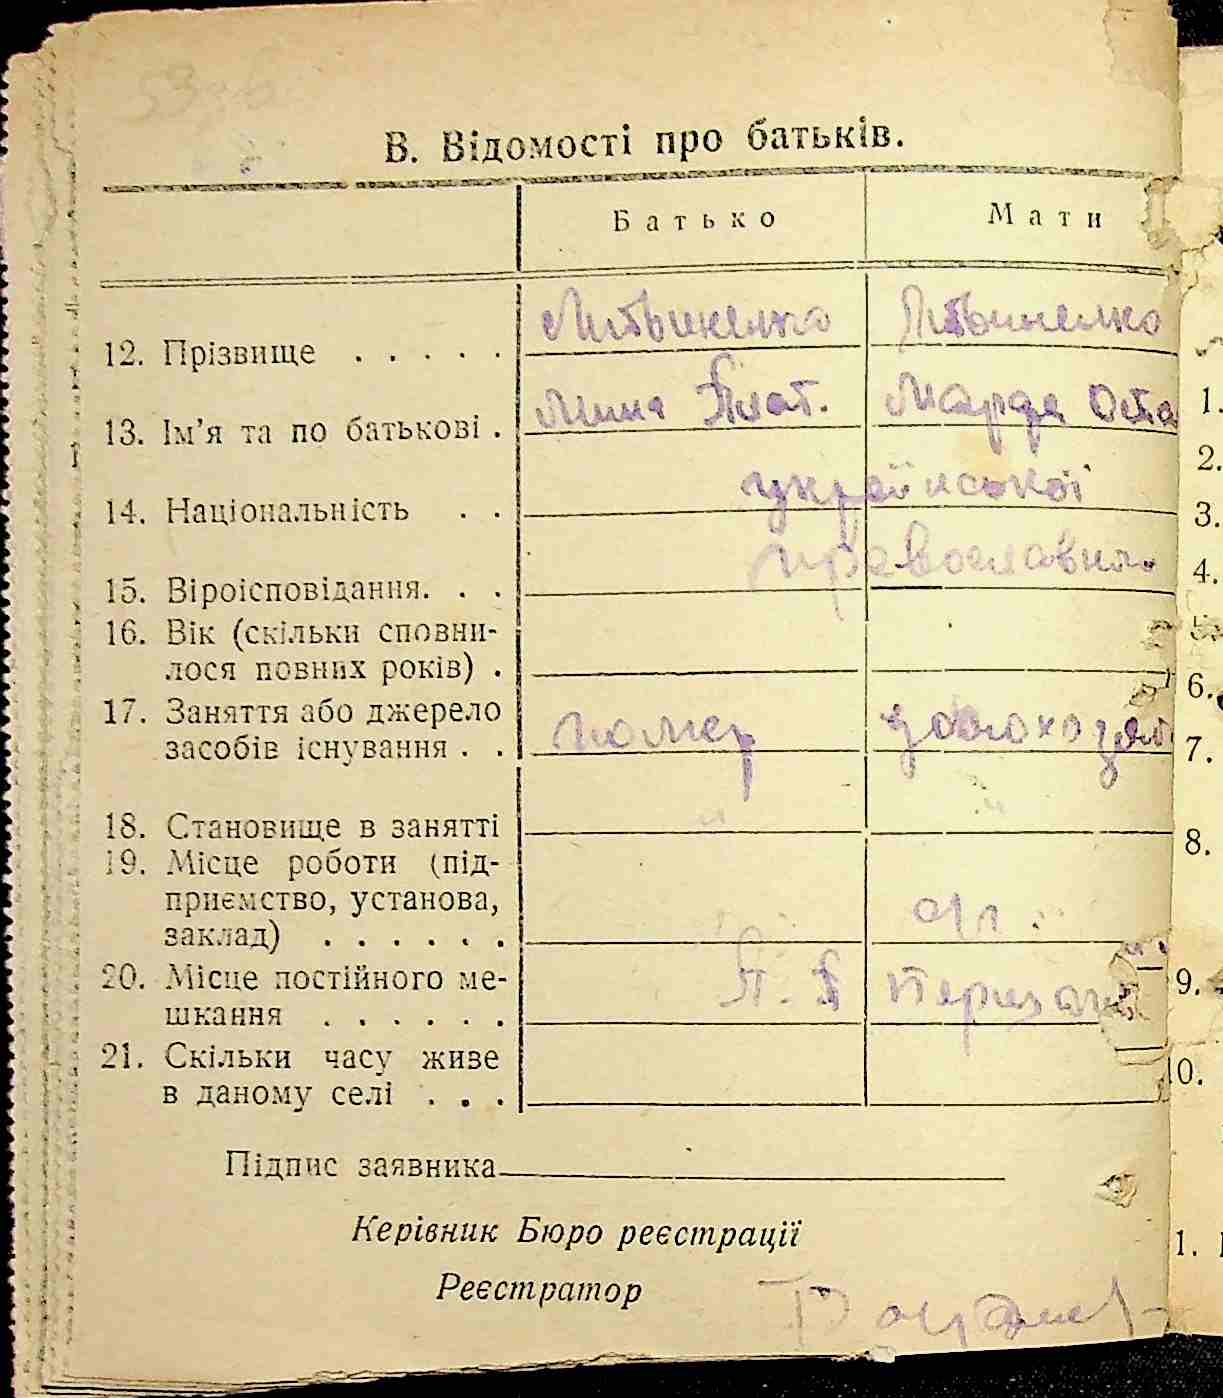 В. Відомості про батьків.
Батько Мати
12. Прізвище . . . . . Литвиненко Литвиненко
13. Ім’я та по батькові . Мина Плат. Марфа Оста
14. Національність . . української
15. Віроісповідання. . . православна
16. Вік (скільки сповни-
лося повних років) .
17. Заняття або джерело
засобів існування . . помер домохозяй
18. Становище в занятті
19. Місце роботи (під-
приємство, установа,
заклад) . . . . . .
20. Місце постійного ме-
шкання . . . . . .
21. Скільки часу живе
в даному селі . . .
Підпис заявника
Керівник Бюро реєстрації
Реєстратор
1.
2.
3.
4.
5.
6.
7.
8.
9.
10.
1.